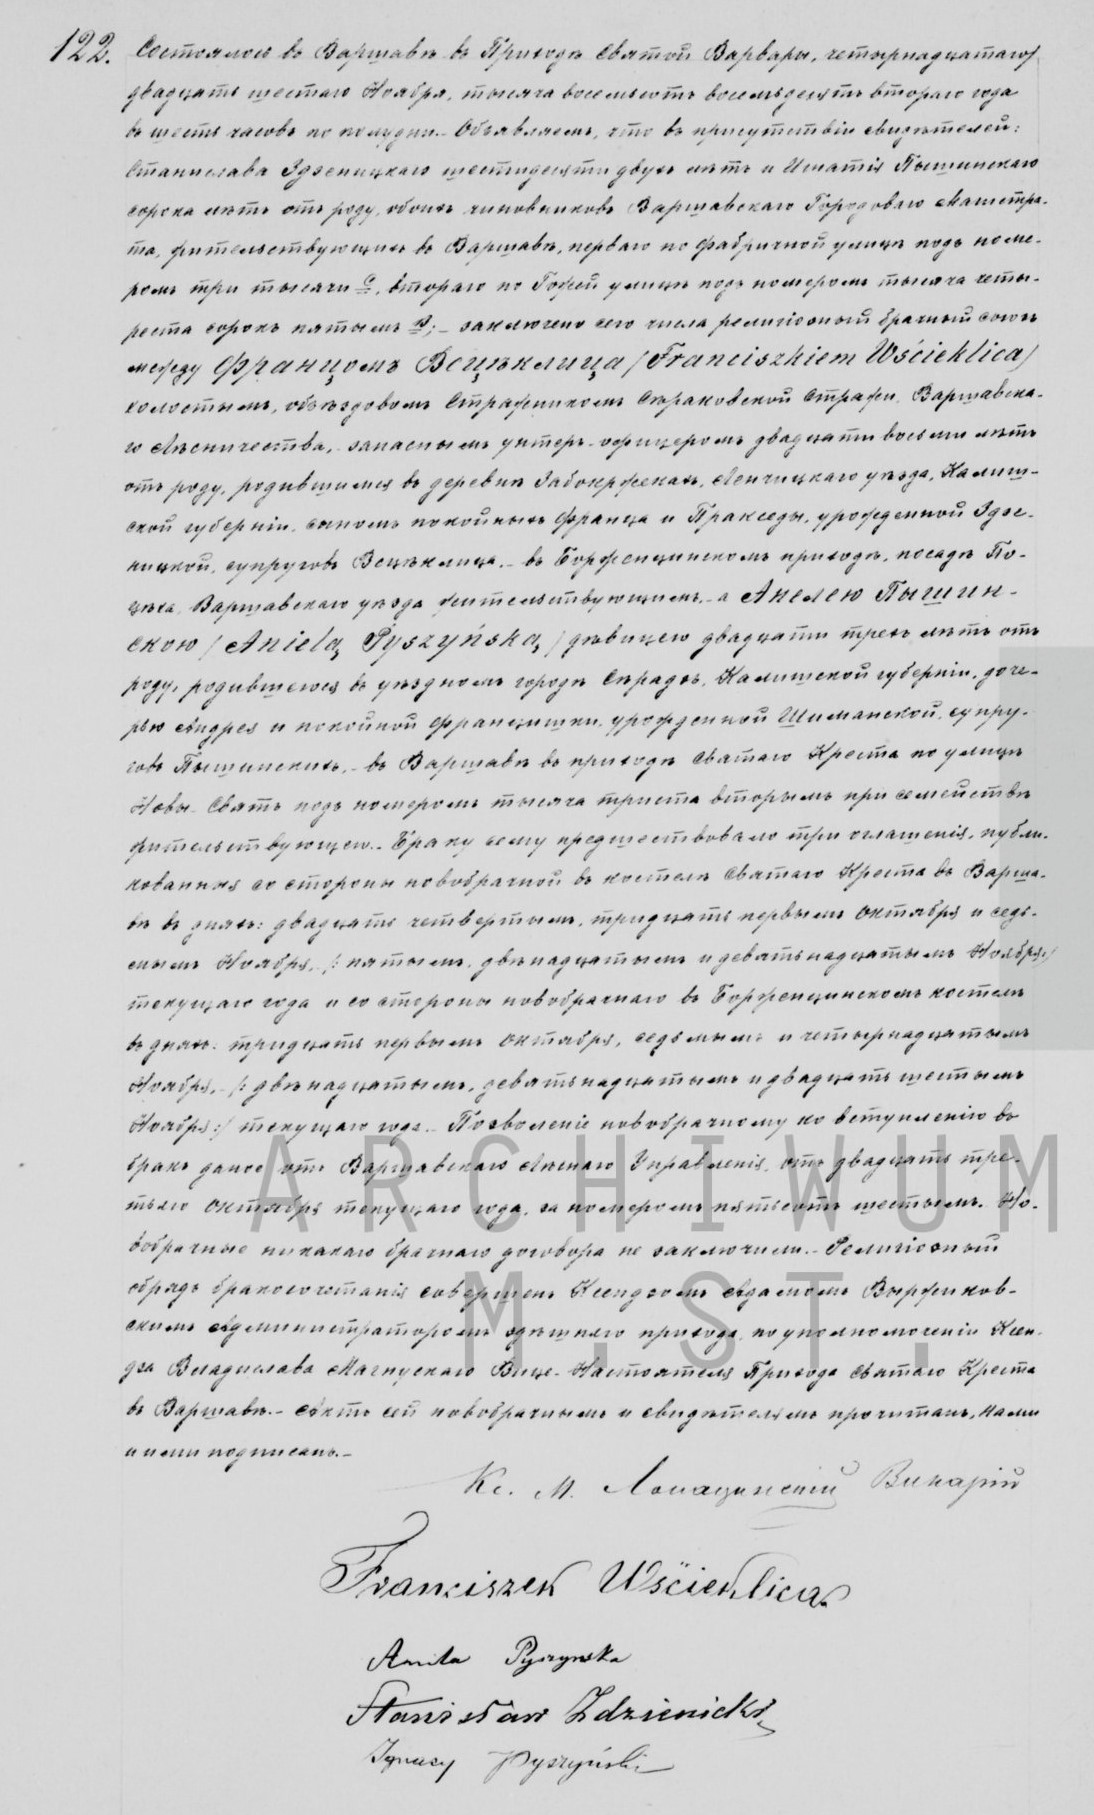 122. Состоялось въ Варшавѣ въ Приходѣ Святой Варвары, четырнадцатаго/
двадцать шестаго Ноября, тысяча восемьсотъ восемьдесятъ втораго года
въ шесть часовъ по полудни.- Объявляемъ, что въ присутствіи свидѣтелей:
Станислава Здзеницкаго шестидесяти двухъ лѣтъ и Игнатія Пышинскаго
сорока лѣтъ отъ роду, обоихъ чиновниковъ Варшавскаго Городоваго Магистра-
та, жительствующихъ въ Варшавѣ, перваго по Фабричной улицѣ подъ номе-
ромъ три тысячи c, втораго по Гожей улицѣ подъ номеромъ тысяча четы-
реста сорокъ пятымъ; - заключенъ сего числа религіозный брачный союзъ
между Францомъ Всцѣклица /Franciszkiem Wścieklica/
холостымъ, объѣздовымъ Стражникомъ Сѣраковской Стражи, Варшавска-
го Лѣсничества, запаснымъ унтеръ-офицеромъ двадцати восьми лѣтъ
отъ роду, родившимся въ деревнѣ Забокржекахъ, Ленчицкаго уѣзда, Калиш-
ской губерніи, сыномъ покойныхъ Франца и Пракседы, урожденной Здзе-
ницкой, супруговъ Всцѣклица, - въ Борженцинскомъ приходѣ, посадѣ По-
цѣха, Варшавскаго уѣзда жительствующимъ, - а Анелею Пышин-
скою /Anielą Pyszyńską/ дѣвицею двадцати трехъ лѣтъ отъ
роду, родившеюся въ уѣздномъ городѣ Сѣрадзѣ, Калишской губерніи, доче-
рью Андрея и покойной Францишки, урожденной Шиманской, супру-
говъ Пышинскихъ, - въ Варшавѣ въ приходѣ Святаго Креста по улицѣ
Новы-Святъ подъ номеромъ тысяча триста вторымъ при семействѣ
жительствующею.- Браку сему предшествовало три оглашенія, публи-
кованныя со стороны новобрачной въ костелѣ Святаго Креста въ Варша-
вѣ въ дняхъ: двадцать четвертымъ, тридцать первымъ Октября и седь-
мымъ Ноября, /: пятымъ, двѣнадцатымъ и девятнадцатымъ Ноября:/
текущаго года и со стороны новобрачнаго въ Борженцинскомъ костелѣ
въ дняхъ: тридцать первымъ Октября, седьмымъ и четырнадцатымъ
Ноября, - /: двѣнадцатымъ, девятнадцатымъ и двадцать шестымъ
Ноября:/ текущаго года.- Позволеніе новобрачному ко вступленію въ
бракъ даное отъ Варшавскаго Лѣснаго Управленія, отъ двадцать тре-
тьяго Октября текущаго года, за номеромъ пятьсотъ шестымъ. Но-
вобрачные никакаго брачнаго договора не заключили.- Религіозный
обрядъ бракосочетанія совершенъ Ксендзомъ Адамомъ Выржиков-
скимъ Администраторомъ здѣшняго прихода, по уполномоченіи Ксен-
дза Владислава Магнускаго Вице-Настоятеля Прихода Святаго Креста
въ Варшавѣ.- Актъ сей новобрачнымъ и свидѣтелямъ прочитанъ, Нами
и ими подписанъ.-
Кс. М. Лопацинскій Викарій
Franciszek Wścieklica
Aniela Pyszynska
Stanisław Zdzienicki
Ignacy Pyszyński
ARCHIWUM
M. ST.